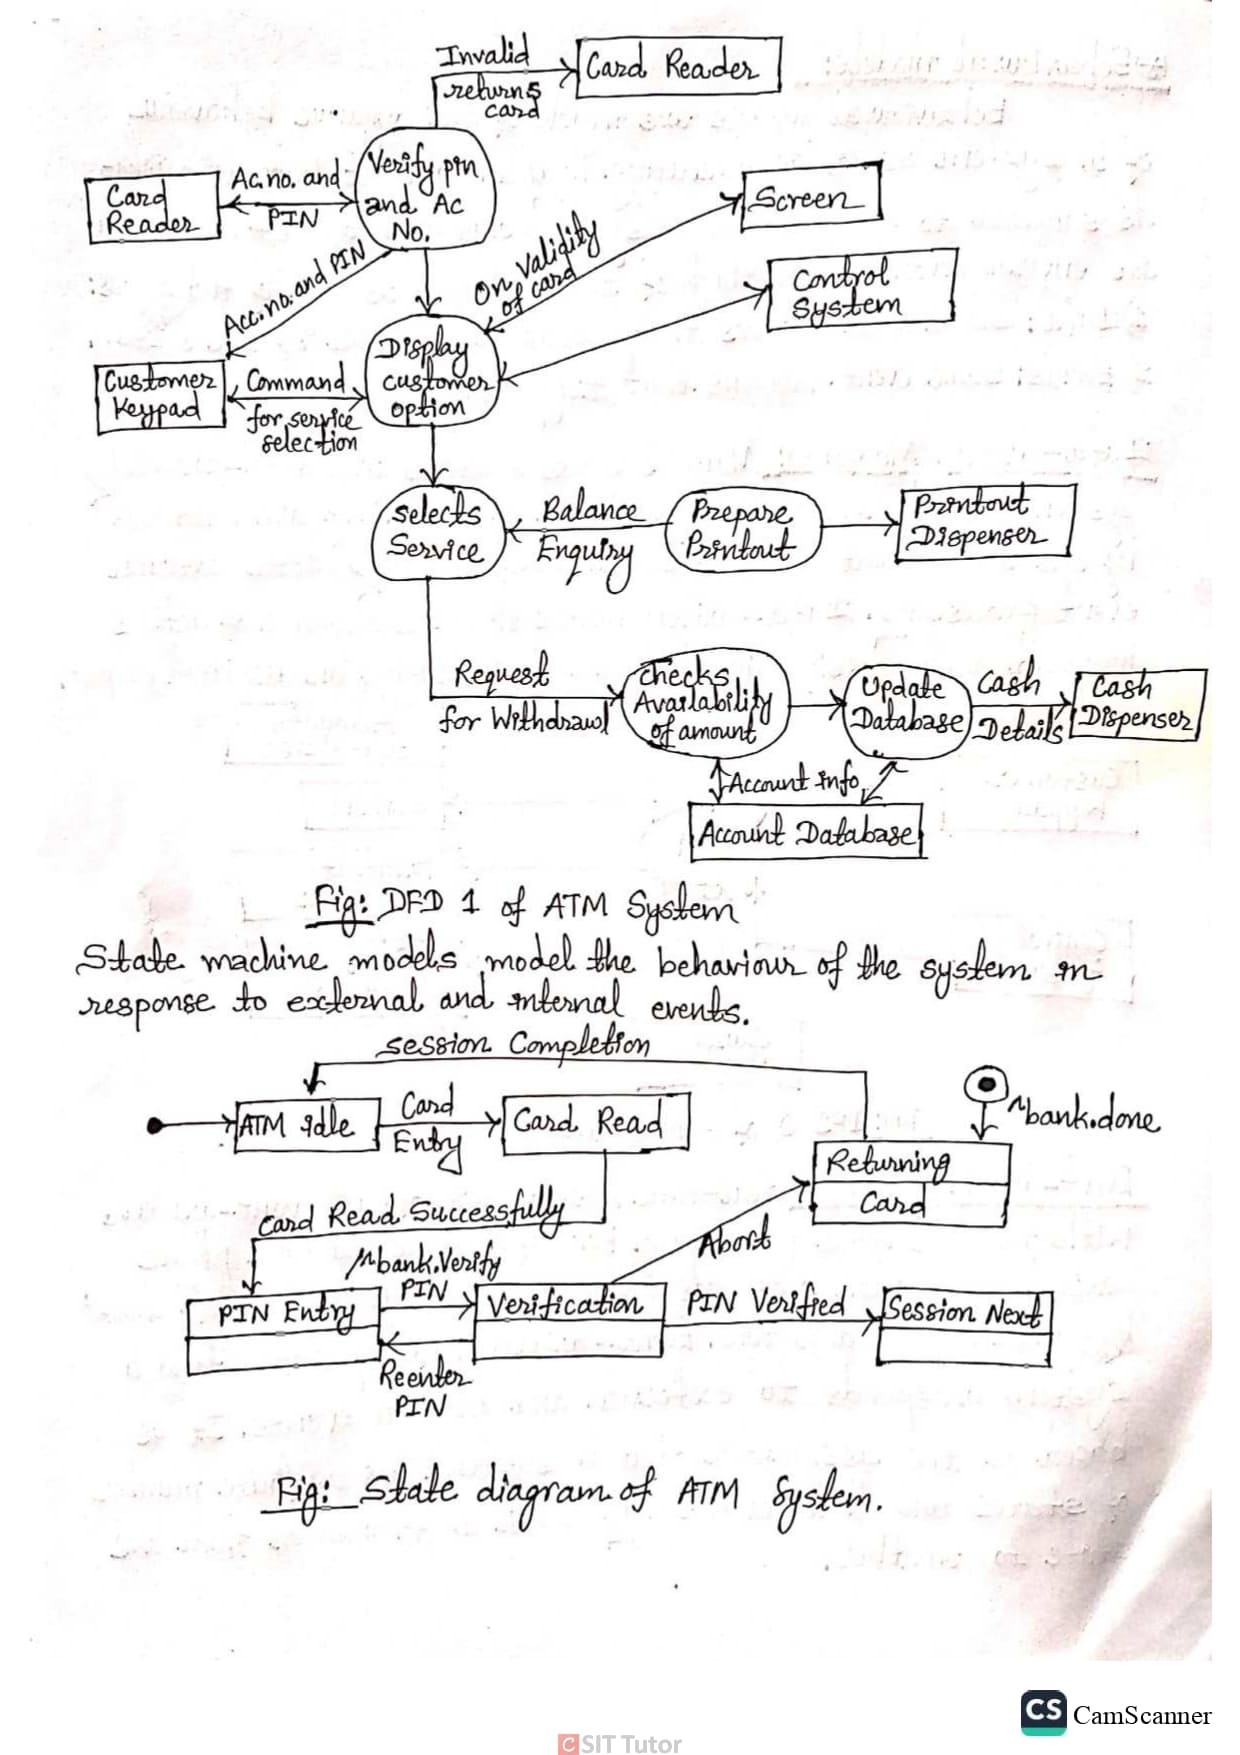 Invalid
returns
card
Card Reader
Verify pin
and Ac
No.
Card
Reader
Ac.no. and
PIN
Screen
On validity
of card
Control
System
Acc.no. and PIN
Display
customer
option
Customer
Keypad
Command
for service
selection
selects
Service
Balance
Enquiry
Prepare
Printout
Printout
Dispenser
Request
for Withdrawl
checks
Availability
of amount
Update
Database
Cash
Details
Cash
Dispenser
Account info
Account Database
Fig: DFD 1 of ATM System
State machine models model the behaviour of the system in
response to external and internal events.
session Completion
ATM idle
Card
Entry
Card Read
^bank.done
Returning
Card
Card Read Successfully
Abort
^bank.Verify
PIN
PIN Entry
Verification
PIN Verified
Session Next
Reenter
PIN
Fig: State diagram of ATM System.
CS CamScanner
CSIT Tutor